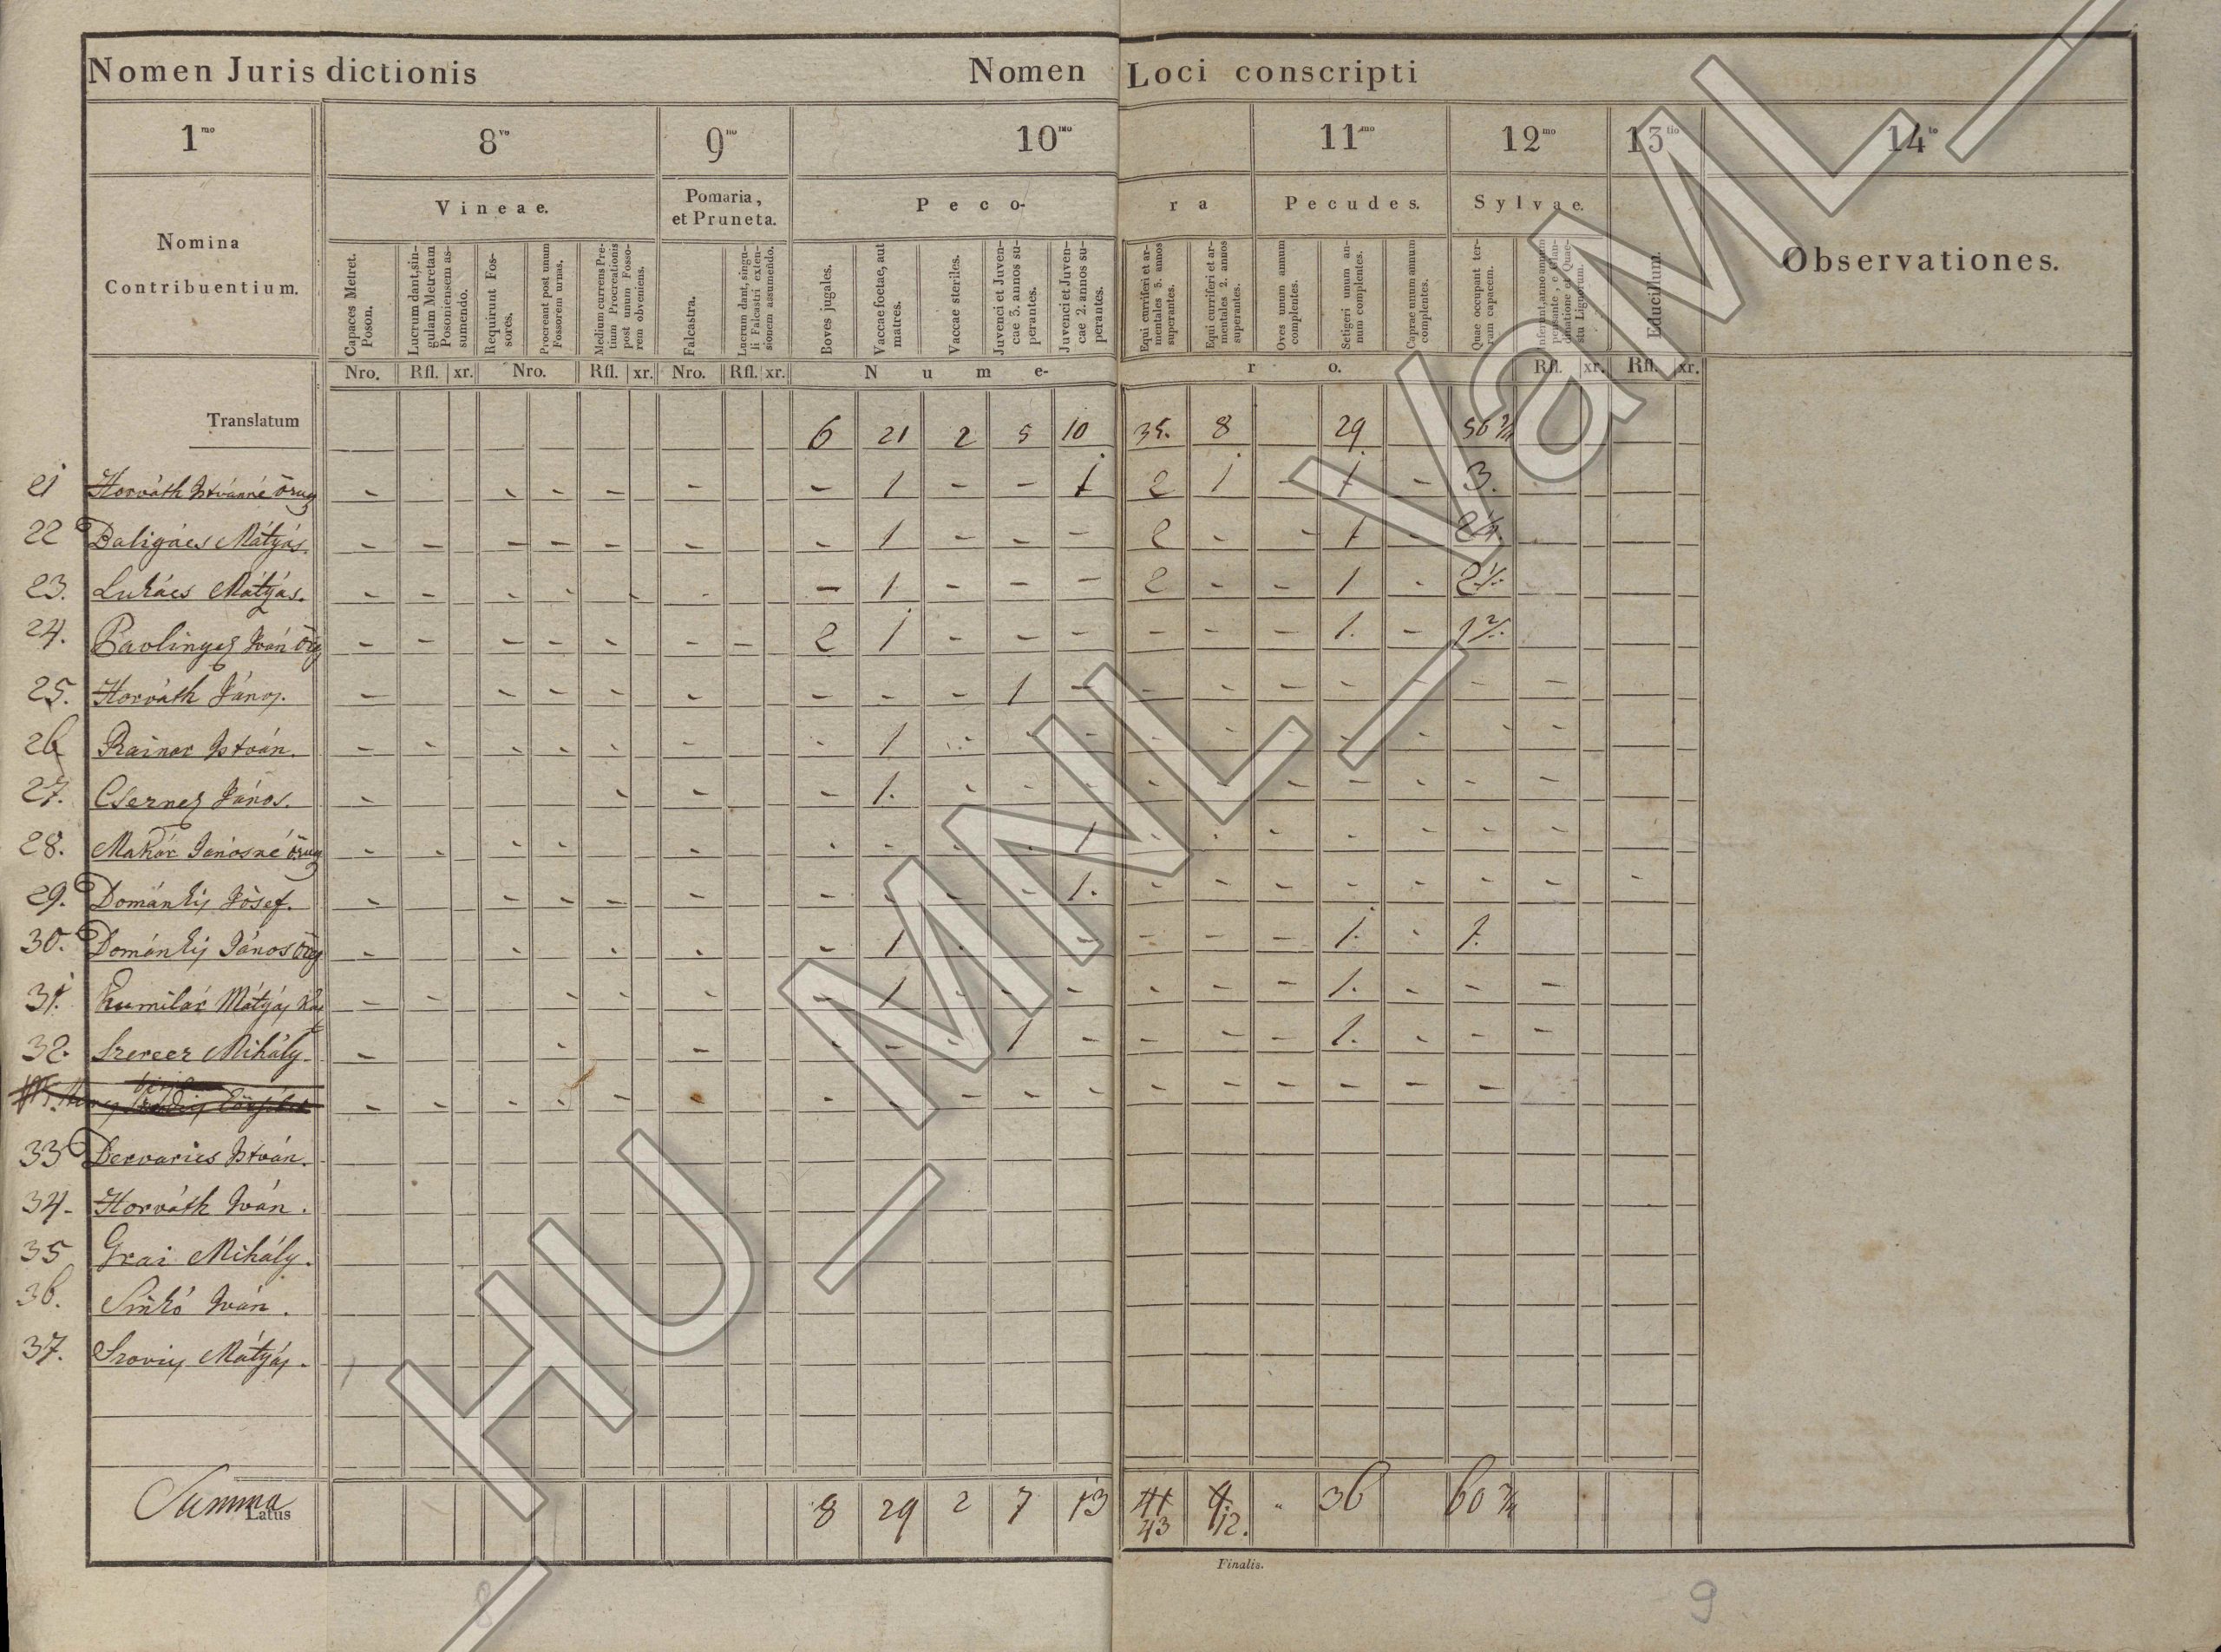 Nomen Jurisdictionis Nomen Loci conscripti
1mo 8vo 9no 10mo 11mo 12mo 13tio 14to
Nomina Contribuentium.
Vineae.
Pomaria, et Pruneta.
Peco-ra
Pecudes.
Sylvae.
Educillum.
Observationes.
Capaces Metret. Poson.
Lucrum dant, singulam Metretam Posoniensem assumendo.
Requirunt Fossores.
Procreant post unum Fossorem urnas.
Medium currens Pretium Procreationis post unum Fossorem obveniens.
Falcastra.
Lucrum dant, singuli Falcastri extensionem assumendo.
Boves jugales.
Vaccae foetae, aut matres.
Vaccae steriles.
Juvenci et Juvencae 3. annos superantes.
Juvenci et Juvencae 2. annos superantes.
Equi curriferi et armentales 3. annos superantes.
Equi curriferi et armentales 2. annos superantes.
Oves unum annum complentes.
Setigeri unum annum complentes.
Caprae unum annum complentes.
Quae occupant terram capacem.
Nro. Rfl. xr. Nro. Rfl. xr. Nro. Rfl. xr. Nume-ro. Rfl. xr. Rfl. xr.
Translatum 6 21 2 5 10 35. 8 29
21 Horváth Istvánné özug - - - - - - 1 - - 1 2 1 - 1 - 3.
22 Baligács Mátyás. - - - - - - - 1 - - - 2 - - 1 -
23. Lukács Mátyás. - - - - - - - 1 - - - 2 - - 1 -
24. Pavlinyez Iván Örg - - - - - - - 2 1 - - - - - - 1. -
25. Horváth János. - - - - - - - - 1 - - - - - - - -
26 Rainer István. - - - - - - - 1 - - - - - - - - -
27. Cserney János. - - - - 1. - - - - - - - - - -
28. Makár Jánosné özug - - - - - - - - - 1 - - - - - - -
29. Domónkis Jósef. - - - - - - - - - 1. - - - - - - - -
30. Domónkis János Örg - - - - - 1 - - - - - 1. - 1.
31. Kumilár Mátyás - - - - - - 1 - - - - - - 1. - - -
32. Szercer Mihály. - - - - - - 1 - - - - 1. - - -
33 Dervarics István.
34. Horváth Iván.
35 Grai Mihály.
36. Sinkó Iván.
37. Szovis Mátyás.
Summa
Latus 8 29 2 7 13 41 9. " 36
43 12.
Finalis.
8 9
_HU_MNL_VaML_